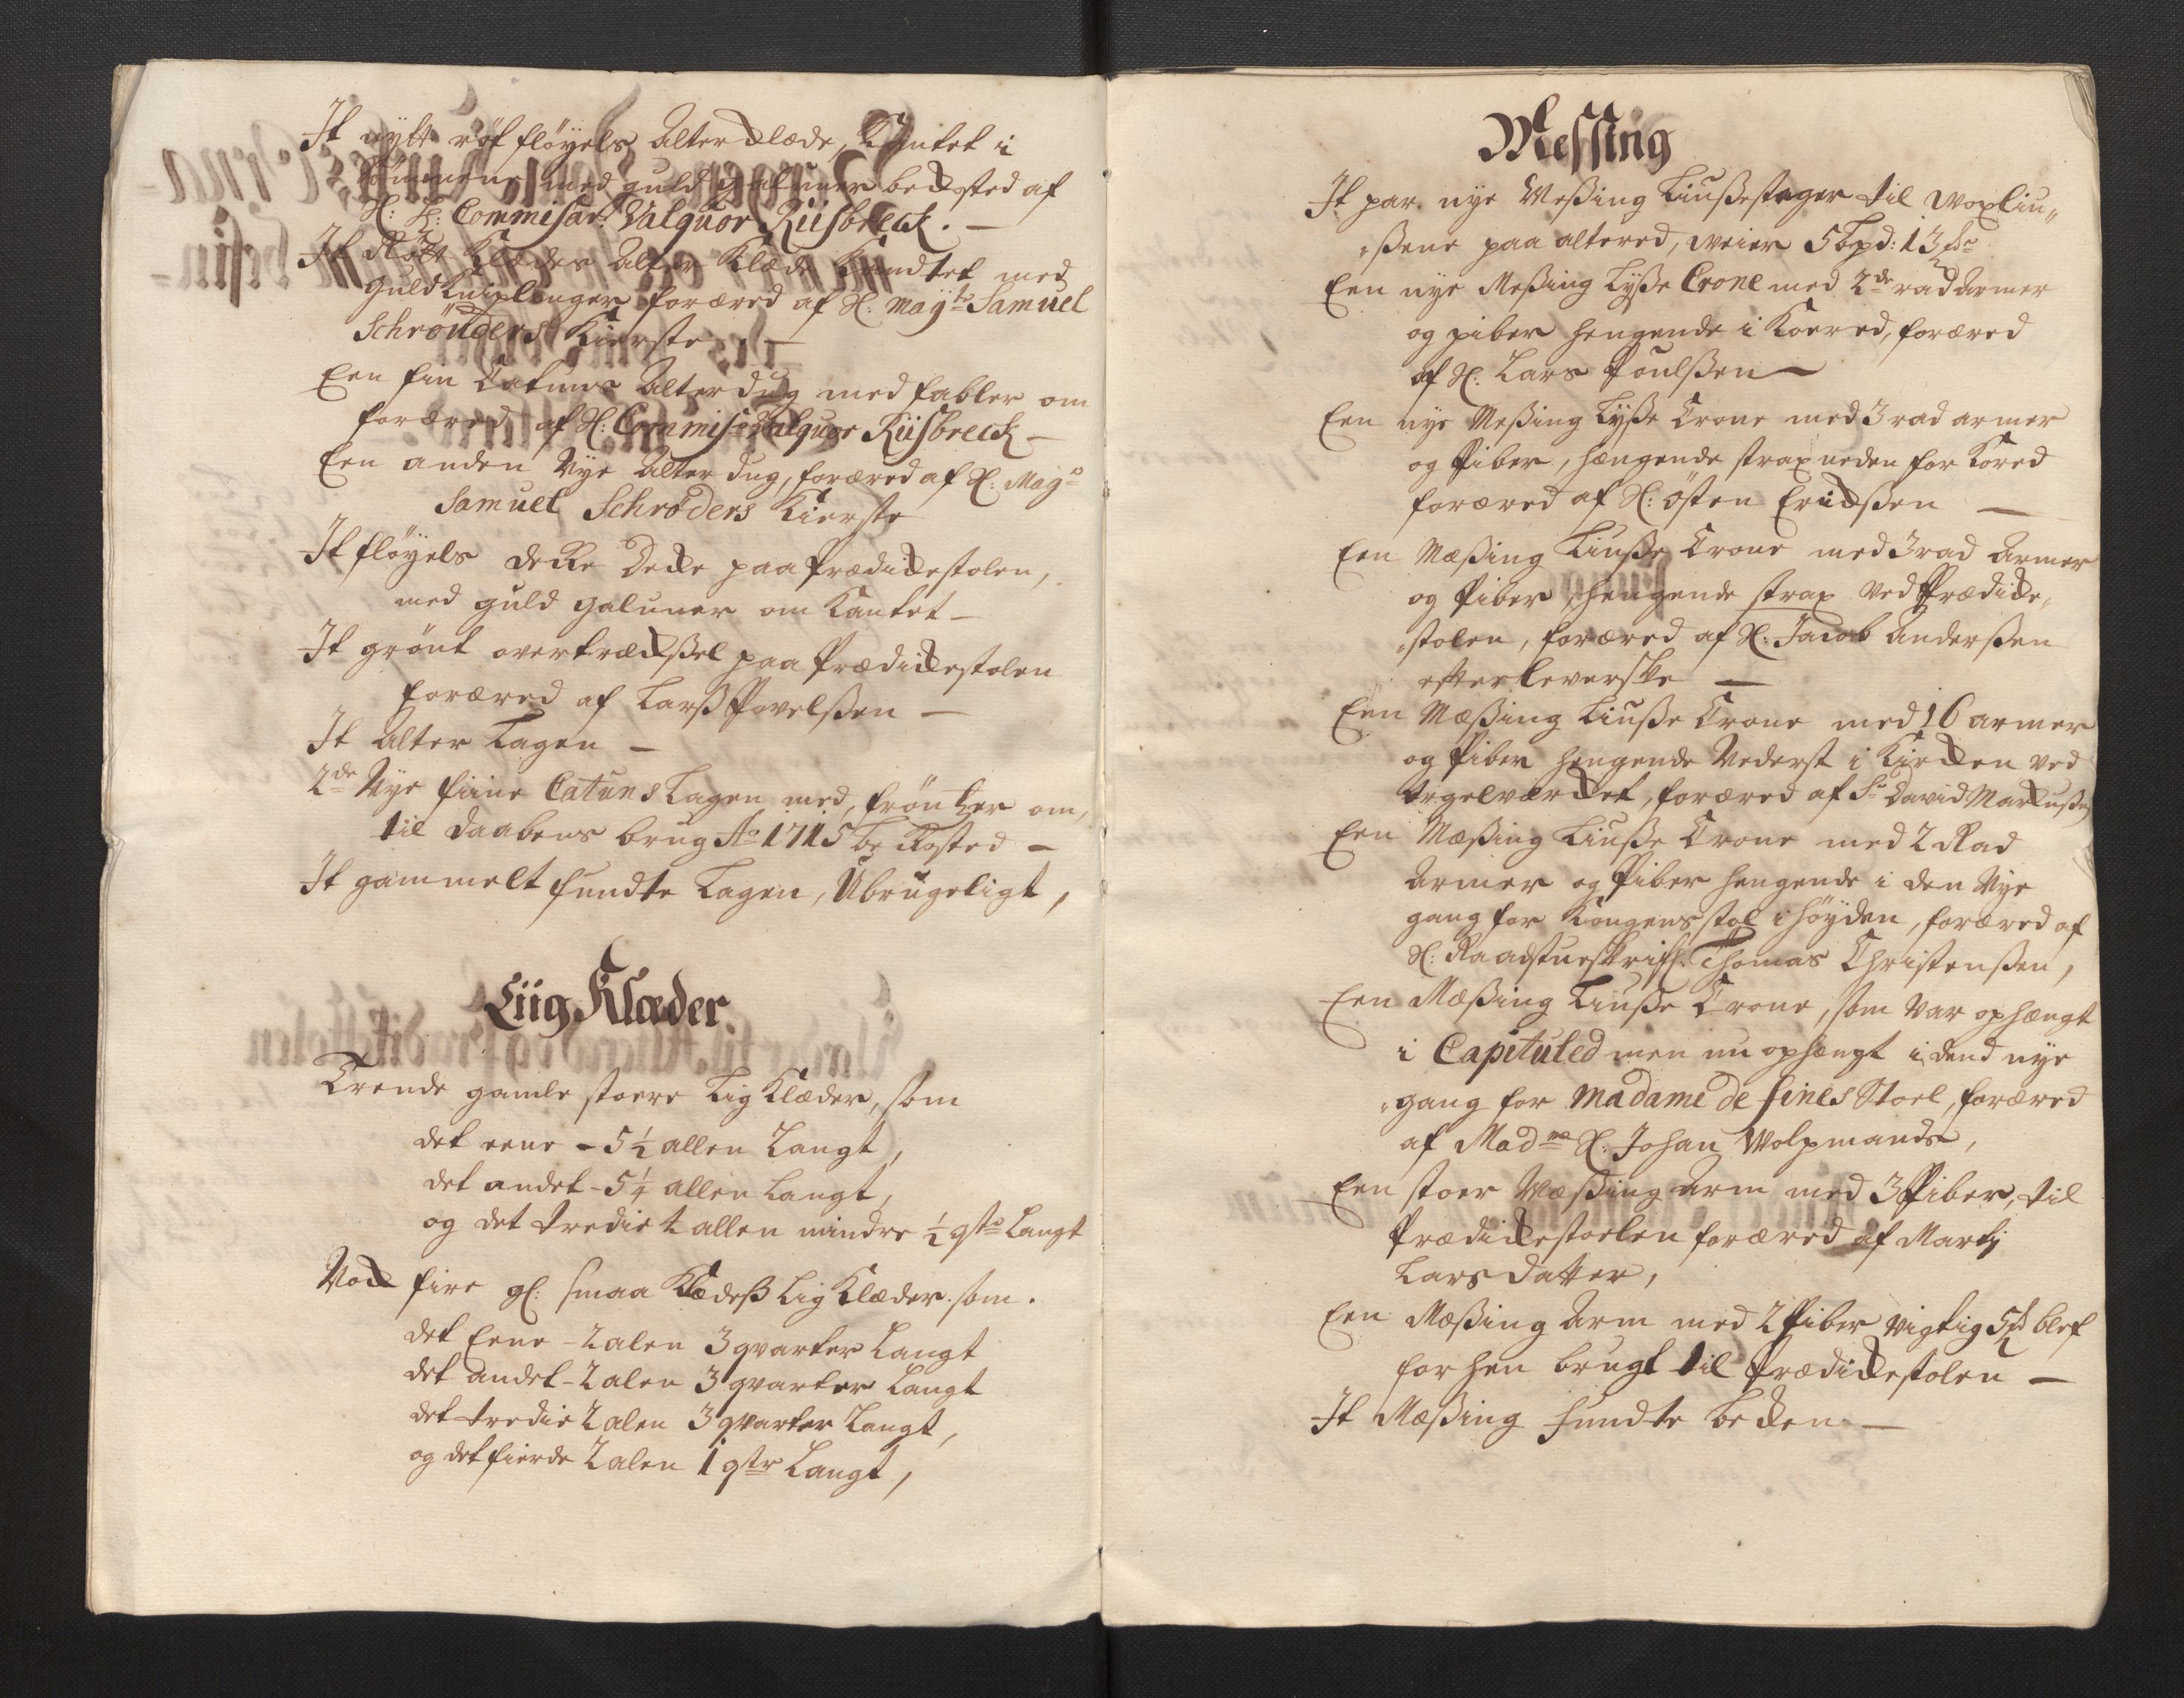 It nytt röt flöyels Alterklæde, Kantet i
Sömmene med guld galuner bekosted af
H: H: Commisar: Valquor Riisbreck. —
It Rött Klædes Alter Klæde Kandtet med
guld Kniplinger foræred af H. Mag: Samuel
Schröuders Kierste, —
Een fin Catuns Alterdug med fabler om
foræred af H: Commis: Valquor Riisbreck —
Een anden Nye Alter dug, foræred af H. Mag:
Samuel Schröders Kierste
It flöyels dekke Dekke paa Prædikestolen,
med guld galuner om Kantet —
It grönt overtrækßel paa Prædikestolen
foræred af Larß Povelßen —
It Alter Lagen —
2de Nye fiine Catuns Lagen med frönßer om,
til daabens brug Ao 1715 be Kosted —
It gammelt fundte Lagen, Ubrugeligt,
Liig Klæder
Trende gamle stoere Lig Klæder, som
det eene - 5 1/2 allen Langt,
det andet - 5 1/4 allen Langt,
og det tredie 4 allen mindre 1/2 qtr Langt
Nok fire gl: smaa Klædeß Lig Klæder. som.
det Eene - 2 alen 3 qvarter Langt
det andet - 2 alen 3 qvarter Langt
det tredie 2 alen 3 qvarter Langt,
og det fierde 2 alen 1 qtr Langt,
Messing
It par nye Meßing Liußestager til woxliu„
„ßene paa altered, weier 5 bpd: 13
Een nye Meßing Lyße Crone med 2de rad Armer
og piber hengende i Koered, foræred
af H. Lars Poulßen —
Een nye Meßing Lyße Crone med 3 rad armer
og Piber, hængende strax neden for Kored
foræred af H: östen Erickßen —
Een Mæßing Liuße Crone med 3 rad Armer
og Piber, hengende strax ved Prædike„
„stolen, foræred af H: Jacob Anderßen
efterleverske —
Een Mæßing Liuße Crone med 16 armer
og Piber hengende Nederst i Kirken ved
Orgelværket, foræred af Sr David Markußen
Een Mæßing Liuße Crone med 2 Rad
Armer og Piber hengende i den Nye
gang for Kongens stol i höyden, foræred af
H: Raadstueskrifr. Thomas Christenßen,
Een Mæßing Liuße Crone, som var ophængt
i Capituled men nu ophængt i dend nye
„gang for Madame de fines Stoel, foræred
af Madme H: Johan Wolpmands,
Een stoer Mæßing Arm med 3 Piber, til
Prædikestoelen foræred af Marty
Larsdatter,
Een Mæßing Arm med 2 Piber vigtig 5 blef
forhen brugt til Prædikestolen —
It Mæßing fundte Bekken —